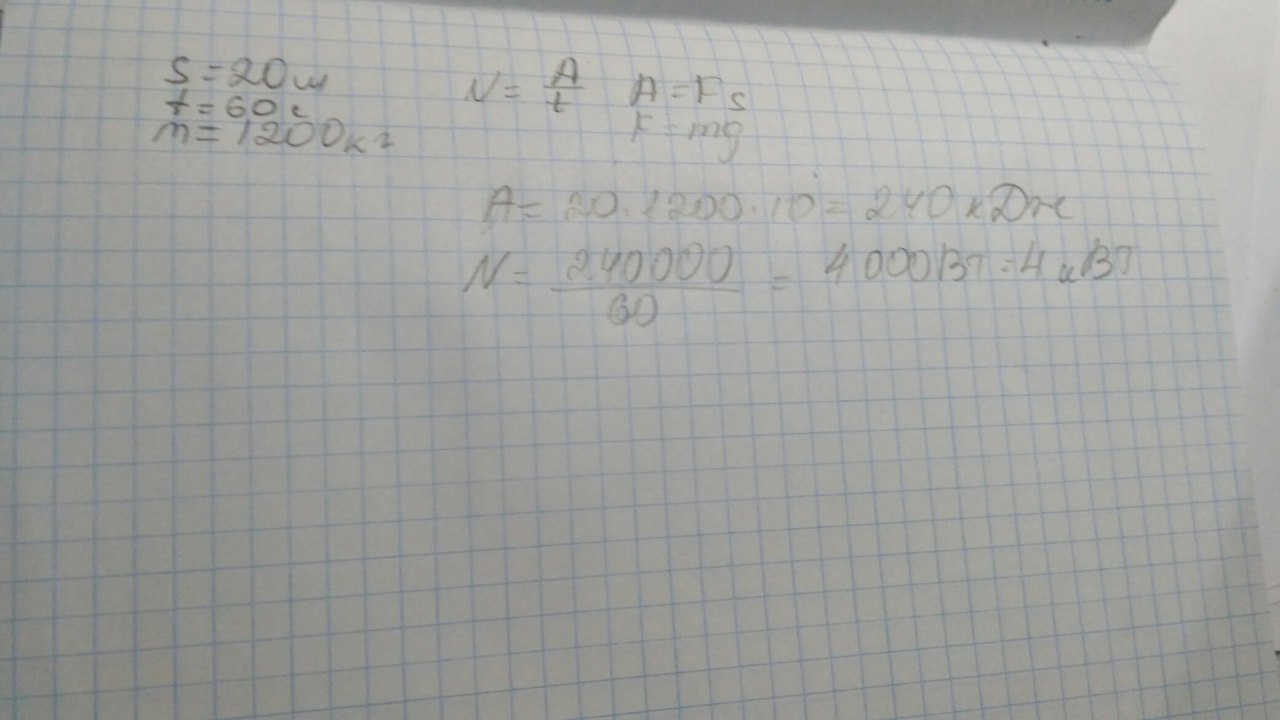 s = 20 м
t = 60 с
m = 1200 кг
N = A/t A = Fs
F = mg
A = 20 · 1200 · 10 = 240 кДж
N = 240000/60 = 4000 Вт = 4 кВт